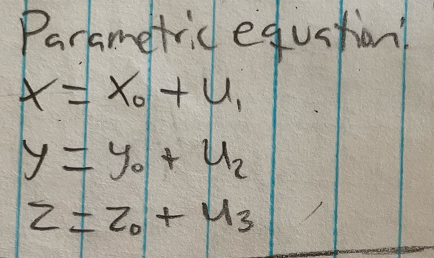 Parametric equation:
x = x₀ + u₁
y = y₀ + u₂
z = z₀ + u₃